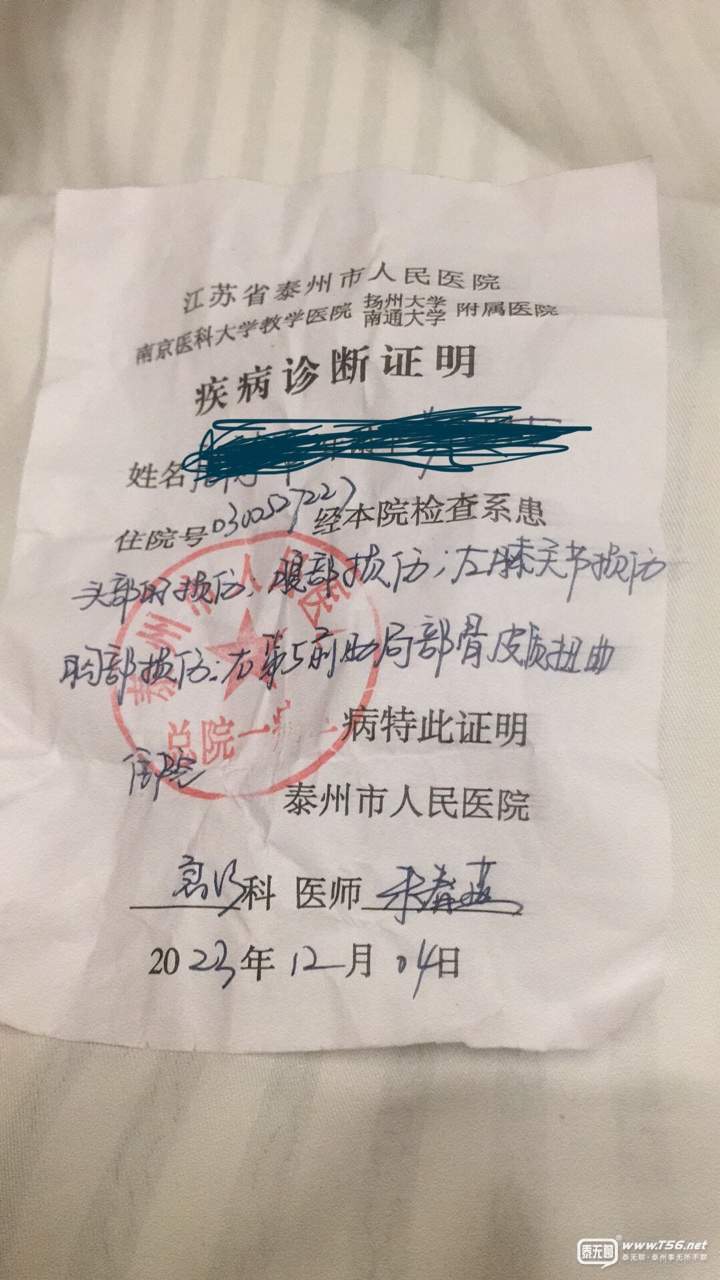 江苏省泰州市人民医院
南京医科大学教学医院 扬州大学 南通大学 附属医院
疾病诊断证明
姓名
住院号0300257227 经本院检查系患
头部的损伤；腹部损伤；左膝关节损伤
胸部损伤：右第5前肋局部骨皮质扭曲
总院一
病特此证明
泰州市人民医院
科 医师
2023年12月04日
泰无聊
www.T56.net
泰无聊·泰州事无所不聊